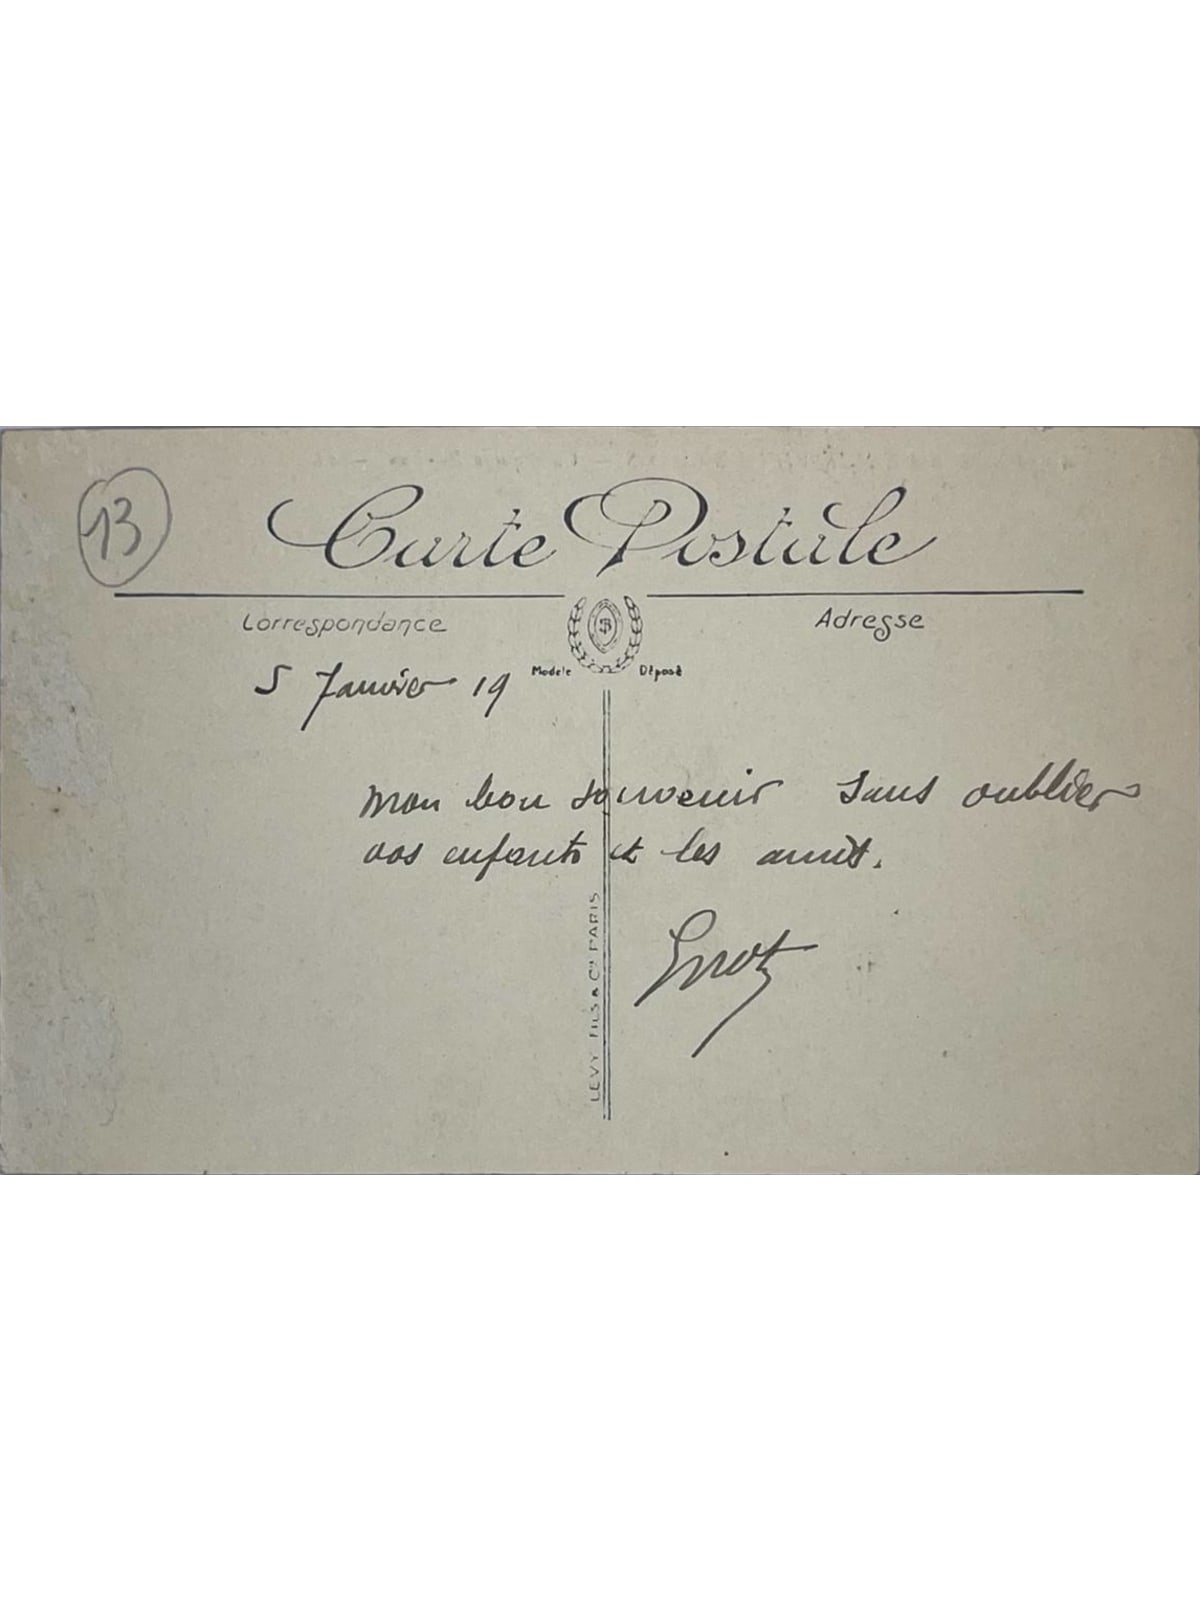 13
Carte Postale
Correspondance
Adresse
Modèle Déposé
5 Janvier 19
mon bon souvenir sans oublier
vos enfants et les
LEVY FILS & Cie PARIS